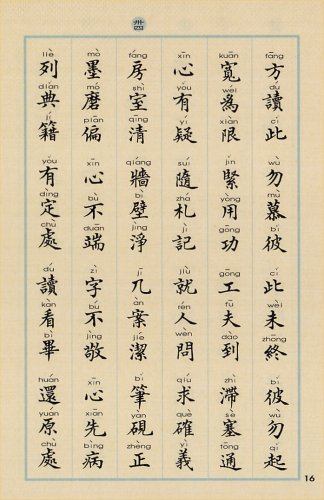 fāng dú cǐ wù mù bǐ cǐ wèi zhōng bǐ wù qǐ
方讀此 勿慕彼 此未終 彼勿起
kuān wéi xiàn jǐn yòng gōng gōng fū dào zhì sè tōng
寬爲限 緊用功 工夫到 滯塞通
xīn yǒu yí suí zhá jì jiù rén wèn qiú què yì
心有疑 隨札記 就人問 求確義
fáng shì qīng qiáng bì jìng jī àn jié bǐ yàn zhèng
房室清 牆壁淨 几案潔 筆硯正
mò mó piān xīn bù duān zì bù jìng xīn xiān bìng
墨磨偏 心不端 字不敬 心先病
liè diǎn jí yǒu dìng chù dú kàn bì huán yuán chù
列典籍 有定處 讀看畢 還原處
16